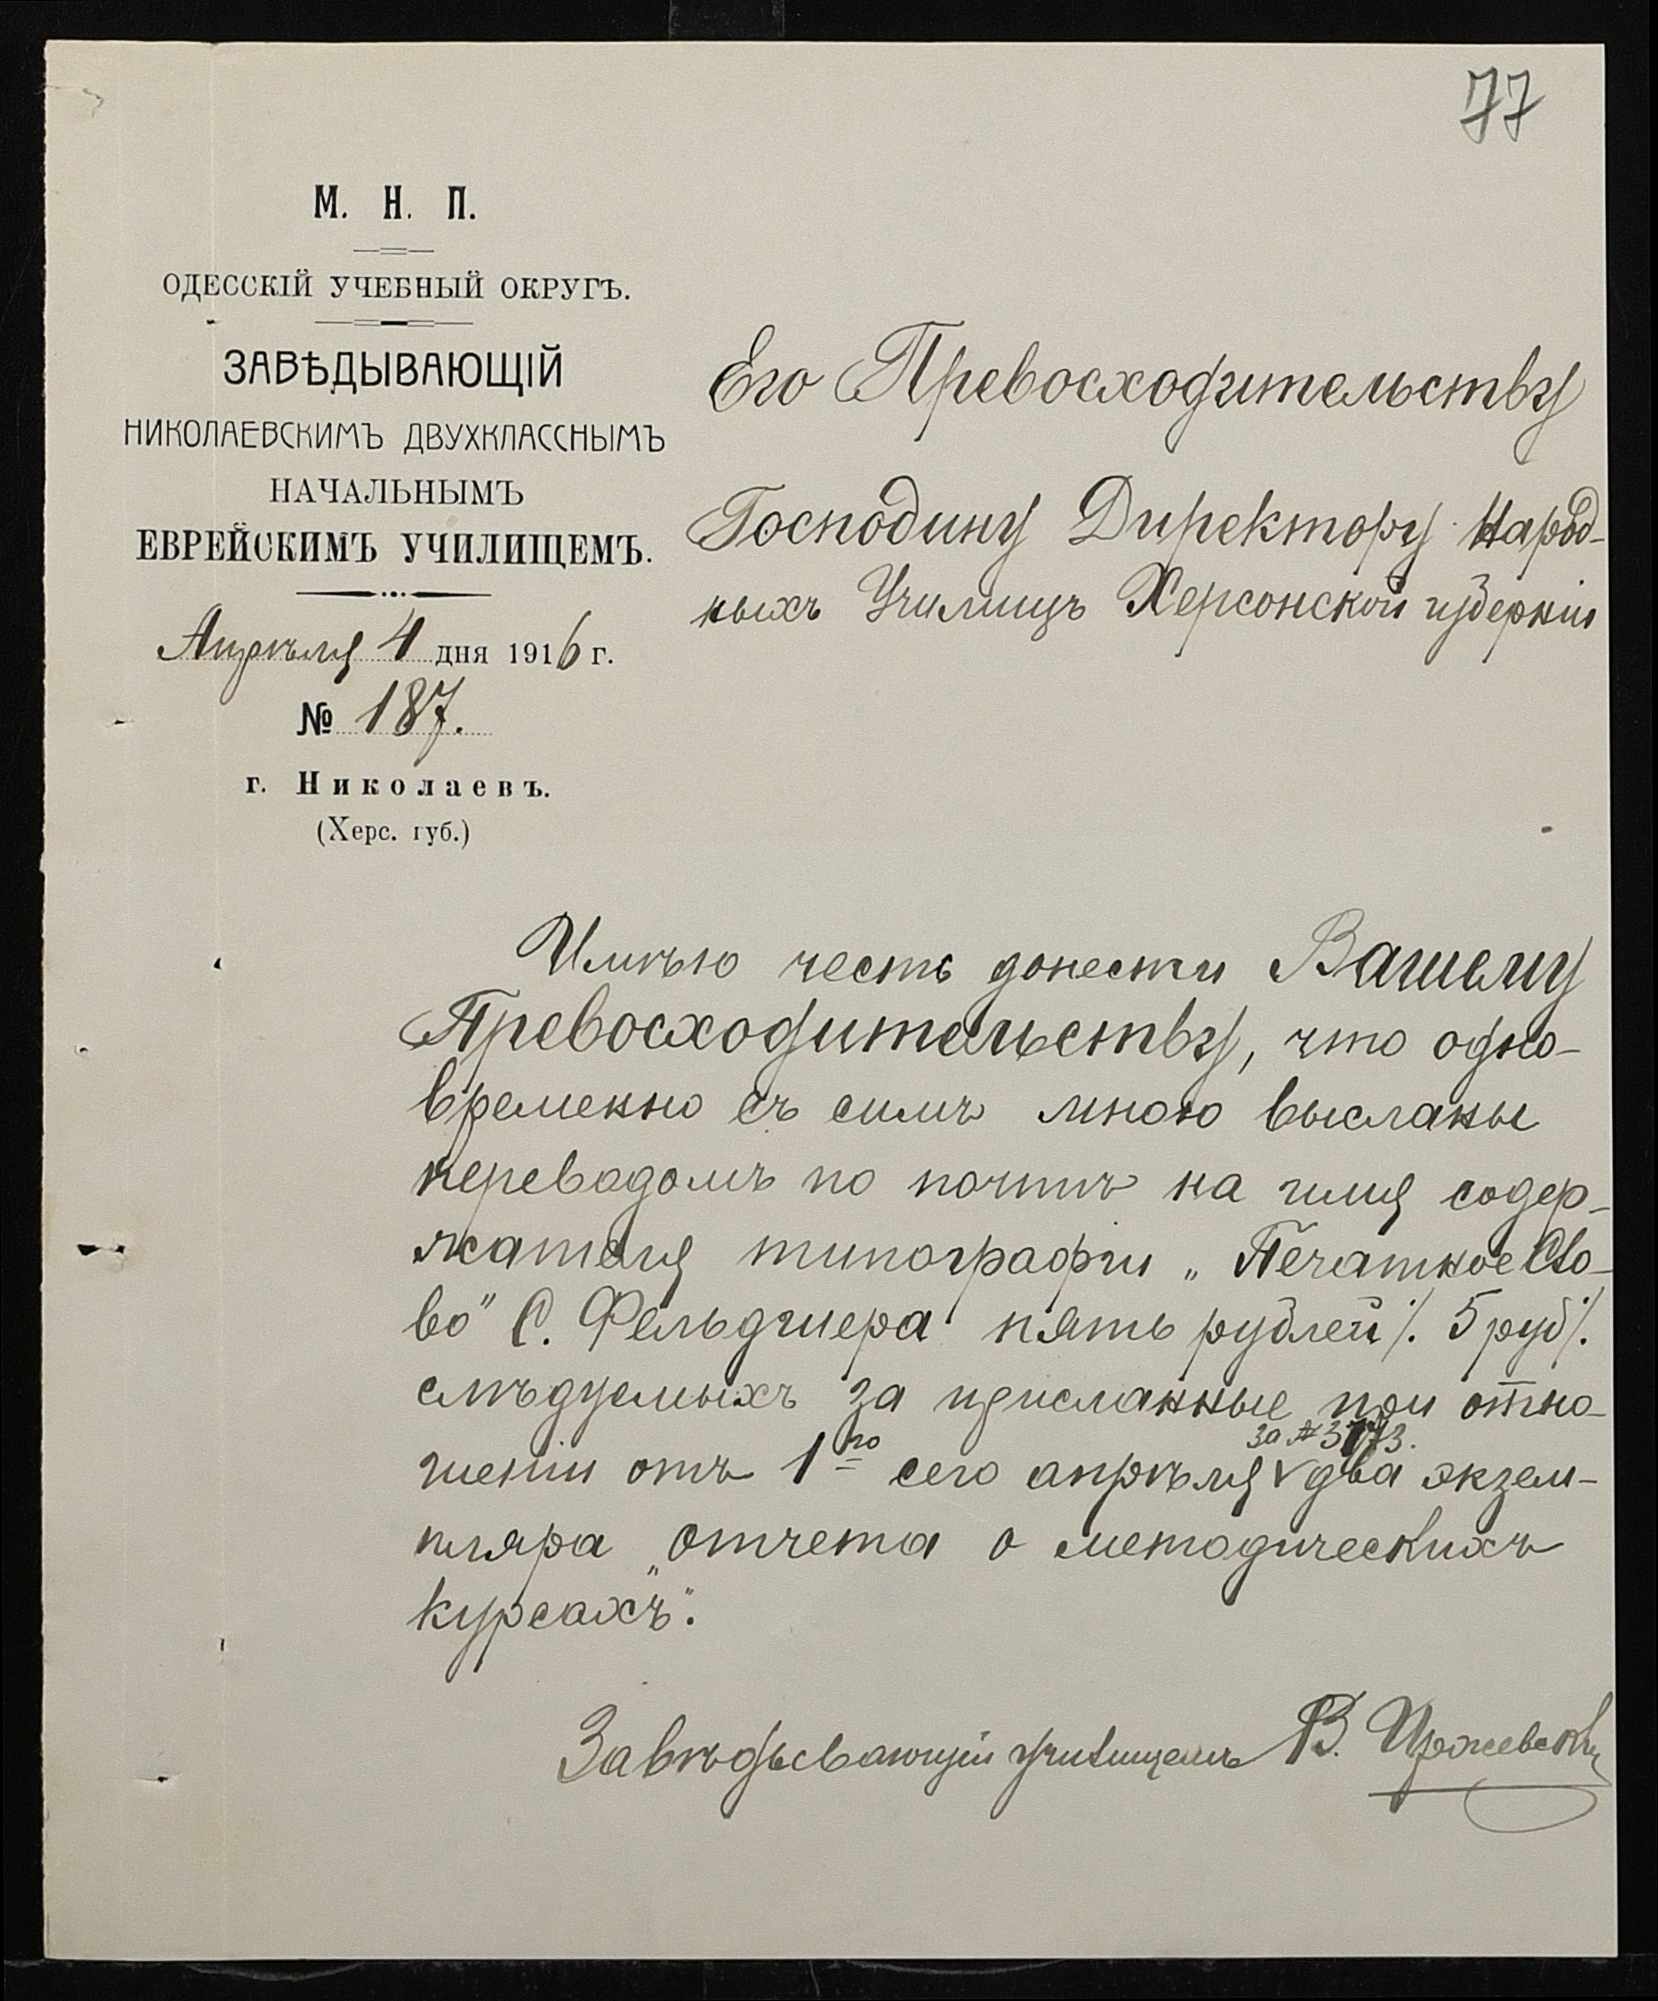 77
М. Н. П.
ОДЕССКІЙ УЧЕБНЫЙ ОКРУГЪ.
ЗАВѢДЫВАЮЩІЙ
НИКОЛАЕВСКИМЪ ДВУХКЛАССНЫМЪ
НАЧАЛЬНЫМЪ
ЕВРЕЙСКИМЪ УЧИЛИЩЕМЪ.
Апрѣля 4 дня 1916 г.
№ 187.
г. Николаевъ.
(Херс. губ.)
Его Превосходительству
Господину Директору Народ-
ныхъ Училищъ Херсонской губерніи
Имѣю честь донести Вашему
Превосходительству, что одно-
временно съ симъ мною высланы
переводомъ по почтѣ на имя содер-
жателя типографіи „Печатное Сло-
во" С. Фельдшера пять рублей ⁒ 5 руб ⁒
слѣдуемыхъ за присланные при отно-
за № 3173.
шеніи отъ 1го сего апрѣля два экзем-
пляра „Отчета о методическихъ
курсахъ".
Завѣдывающій училищемъ В.